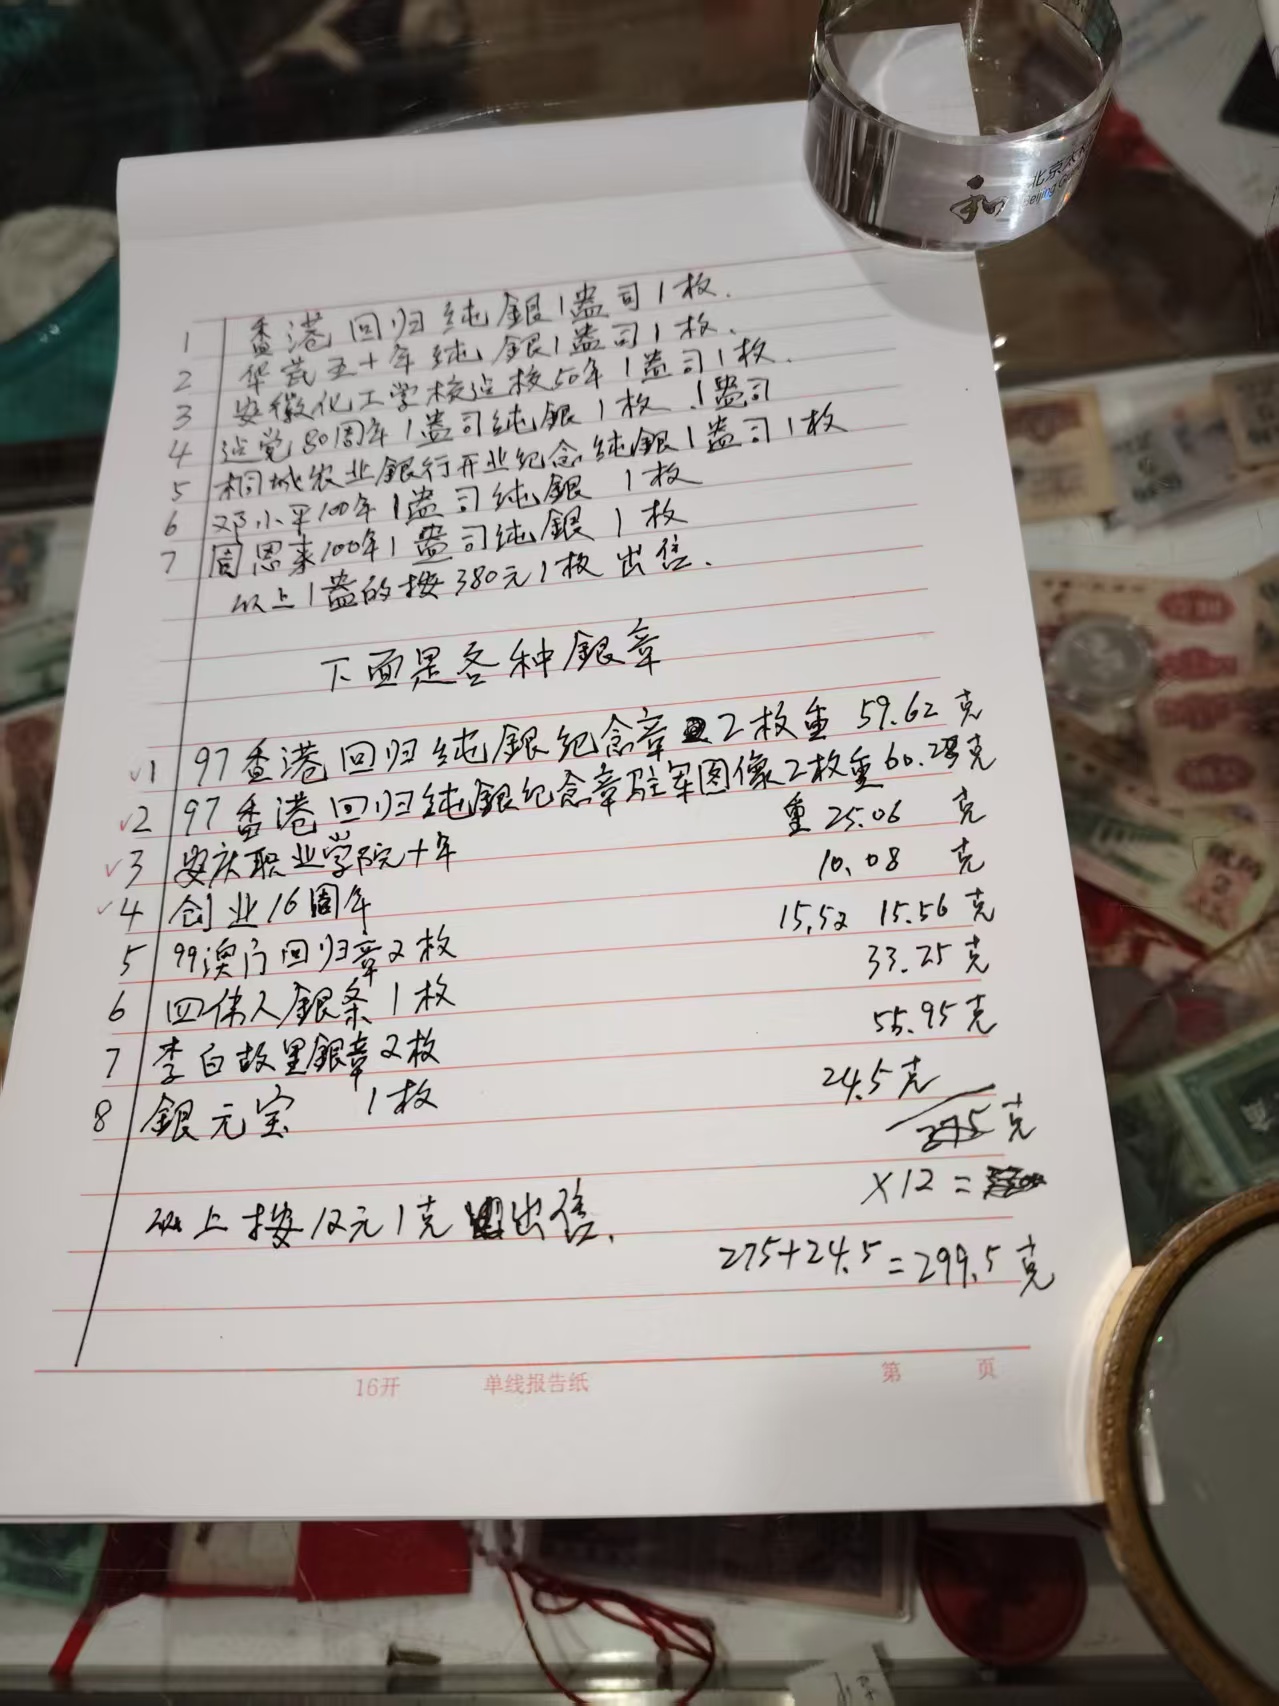 北京
Beijing
1 香港回归纯銀1盎司1枚.
2 华诞五十年纯銀1盎司1枚.
3 安徽化工学校边校50年1盎司1枚.
4 边党80周年1盎司纯銀1枚.1盎司
5 桐城农业銀行开业纪念纯銀1盎司1枚
6 邓小平100年1盎司纯銀 1枚
7 周恩来100年1盎司纯銀1枚
以上1盎的按380元1枚出售.
下面是各种銀章
√1 97香港回归纯銀纪念章2枚重 59.62克
√2 97香港回归纯銀纪念章驻军图像2枚重60.28克
√3 安庆职业学院十年 重25.06 克
√4 创业16周年 10.08 克
5 99澳门回归章2枚 15.52 15.56克
6 四伟人銀条1枚 33.25克
7 李白故里銀章2枚 55.95克
8 銀元宝 1枚 24.5克
275克
×12=
以上按12元1克出售.
275+24.5=299.5克
16开 单线报告纸 第 页